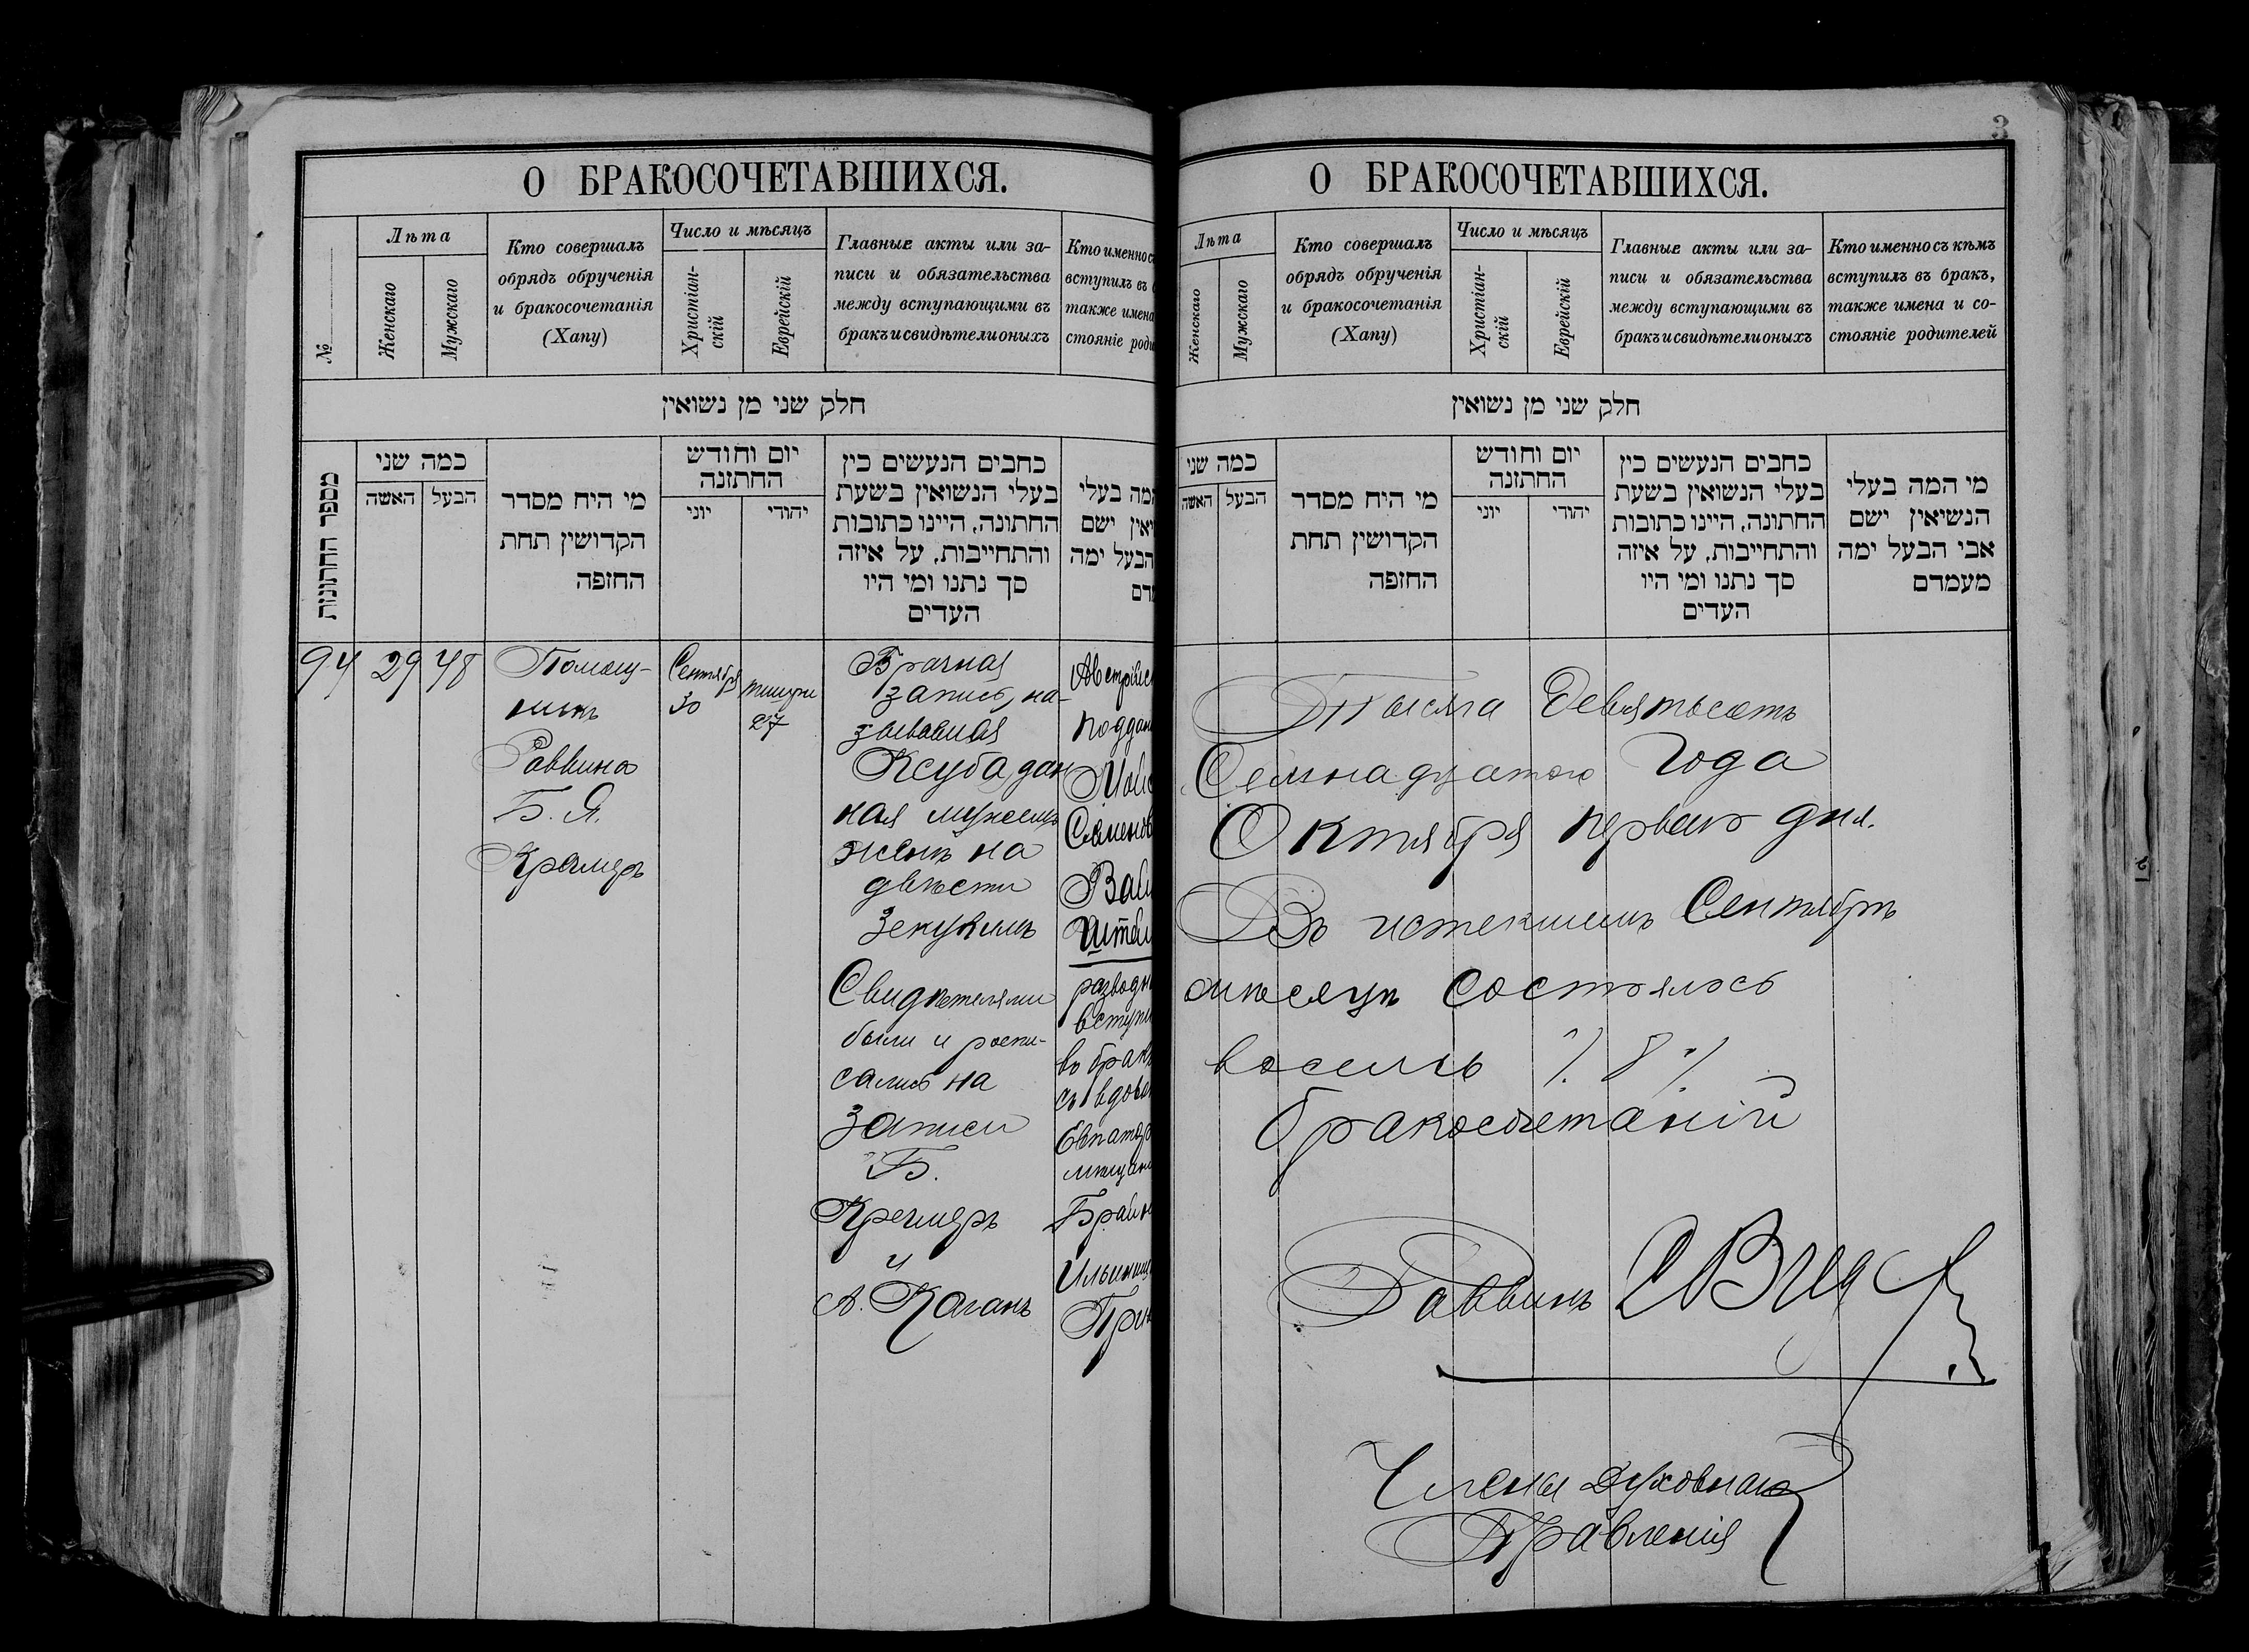 3
О БРАКОСОЧЕТАВШИХСЯ.
№
Лѣта
Женскаго
Мужскаго
Кто совершалъ
обрядъ обрученія
и бракосочетанія
(Хапу)
Число и мѣсяцъ
Христіан-
скій
Еврейскій
Главные акты или за-
писи и обязательства
между вступающими въ
бракъ и свидѣтели оныхъ
Кто именно съ
вступилъ въ
также имена
стояніе роди
חלק שני מן נשואין
מספר החתונות
כמה שני
האשה
הבעל
מי היח מסדר
הקדושין תחת
החזפה
יום וחודש
החתזנה
יוני
יהודי
כחבים הנעשים כין
בעלי הנשואין בשעת
החתונה, היינו כתובות
והתחייבות, על איזה
סך נתנו ומי היו
העדים
המה בעלי
יאין ישם
הבעל ימה
94
29
48
Помощ-
никъ
Раввина
Б. Я.
Кремеръ
Сентября
30
тишри
27
Брачная
запись, на-
зываемая
Ксуба, дан
ная мужемъ
женѣ на
двѣсти
Зекукимъ
Свидѣтелями
были и роспи-
сались на
записи
Б.
Кремеръ
и
А. Каганъ
Австрійс
поддан
Мой
Семенов
Вай
Штей
разводн
вступи
въ бракъ
съ вдово
Евпатор
мѣщан
Брайн
Ильинич
Грин
О БРАКОСОЧЕТАВШИХСЯ.
Лѣта
Женскаго
Мужскаго
Кто совершалъ
обрядъ обрученія
и бракосочетанія
(Хапу)
Число и мѣсяцъ
Христіан-
скій
Еврейскій
Главные акты или за-
писи и обязательства
между вступающими въ
бракъ и свидѣтели оныхъ
Кто именно съ кѣмъ
вступилъ въ бракъ,
также имена и со-
стояніе родителей
חלק שני מן נשואין
כמה שני
האשה
הבעל
מי היח מסדר
הקדושין תחת
החזפה
יום וחודש
החתזנה
יוני
יהודי
כחבים הנעשים כין
בעלי הנשואין בשעת
החתונה, היינו כתובות
והתחייבות, על איזה
סך נתנו ומי היו
העדים
מי המה בעלי
הנשיאין ישם
אבי הבעל ימה
מעמדם
Тысяча Девятьсотъ
Семнадцатого Года
Октября перваго дня.
Въ истекшемъ Сентябрѣ
мѣсяцѣ состоялось
восемь /. 8 ./
бракосочетаній
Раввинъ
Члены Духовнаго
Правленія